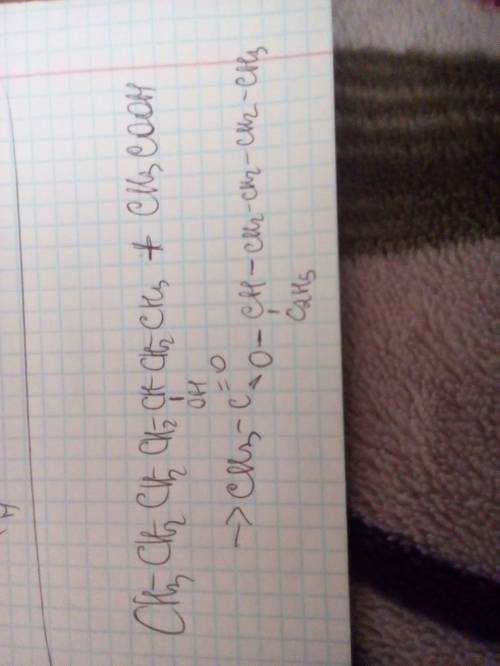 CH₃-CH₂-CH₂-CH₂-CH-CH₂-CH₃ + CH₃COOH
OH
→ CH₃-C=O
O-CH-CH₂-CH₂-CH₂-CH₃
C₂H₅